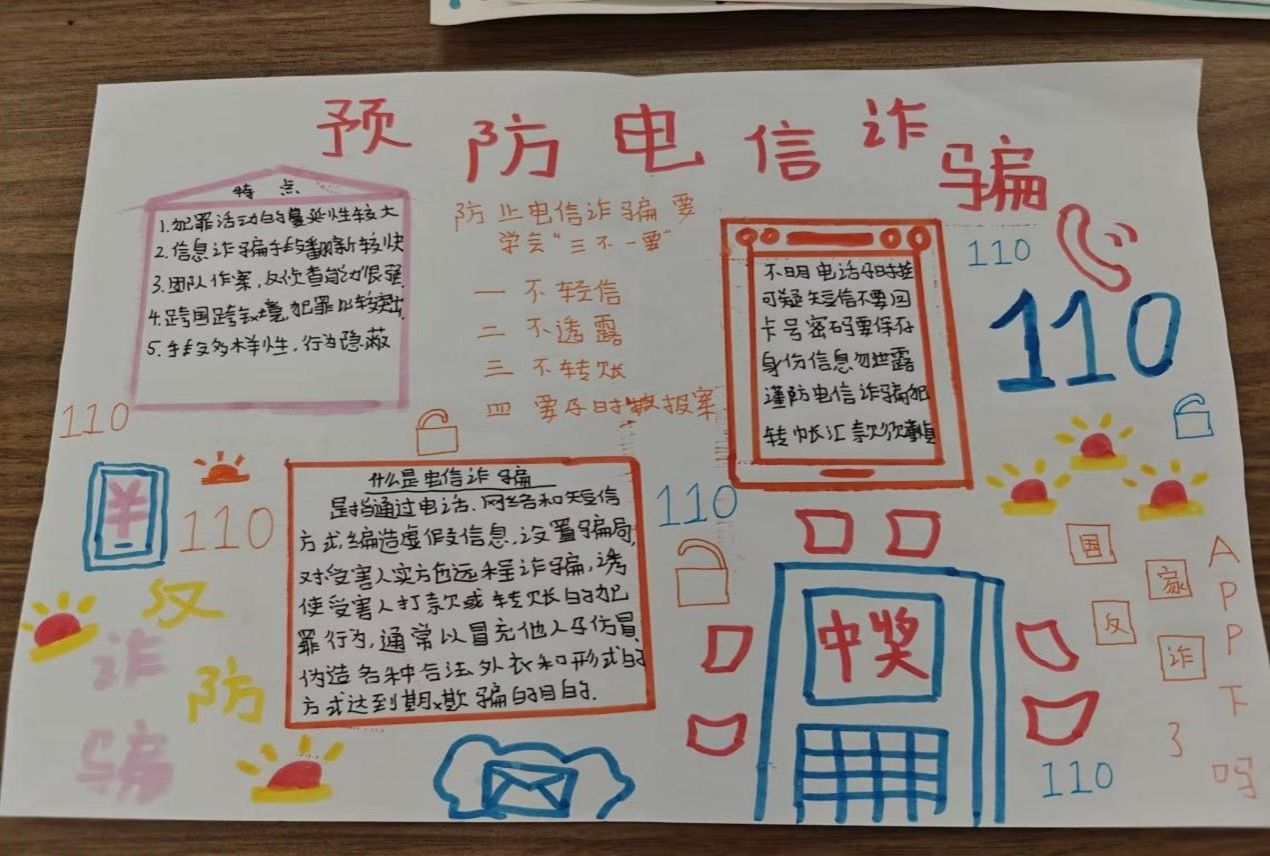 预防电信诈骗
特点
1.犯罪活动的蔓延性较大
2.信息诈骗手段翻新较快
3.团队作案，反侦查能力很强
4.跨国跨境犯罪比较突出
5.手段多样性，行为隐蔽
防止电信诈骗要
学会“三不一要”
一 不轻信
二 不透露
三 不转账
四 要及时报案
不明电话及时挂
可疑短信不要回
卡号密码要保存
身份信息勿泄露
谨防电信诈骗犯
转帐汇款须慎
110
110
110
110
110
110
什么是电信诈骗
是指通过电话、网络和短信
方式，编造虚假信息，设置骗局，
对受害人实方包远程诈骗，诱
使受害人打款或转账的犯
罪行为，通常以冒充他人及仿冒、
伪造各种合法外衣和形式的
方式达到欺骗的目的.
¥
反
诈
防
骗
中奖
国
家
反
诈
APP下
3
吗